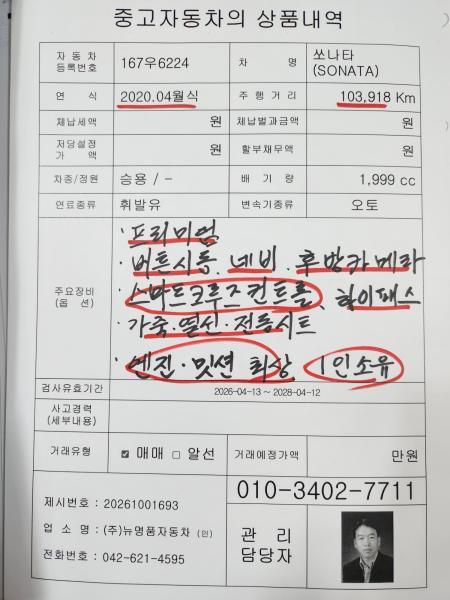 중고자동차의 상품내역
자동차등록번호 167우6224 차명 쏘나타(SONATA)
연식 2020.04월식 주행거리 103,918 Km
체납세액 원 체납벌과금액 원
저당설정가액 원 할부채무액 원
차종/정원 승용 / - 배기량 1,999 cc
연료종류 휘발유 변속기종류 오토
주요장비(옵션)
· 프리미엄
· 버튼시동. 네비. 후방카메라
· 스마트크루즈컨트롤, 하이패스
· 가죽·열선·전동시트
· 엔진·밋션 최상 1인소유
검사유효기간 2026-04-13 ~ 2028-04-12
사고경력(세부내용)
거래유형 ☑ 매매 □ 알선 거래예정가액 만원
제시번호 : 20261001693
업소명 : (주)뉴명품자동차 (인)
전화번호 : 042-621-4595
010-3402-7711
관리담당자